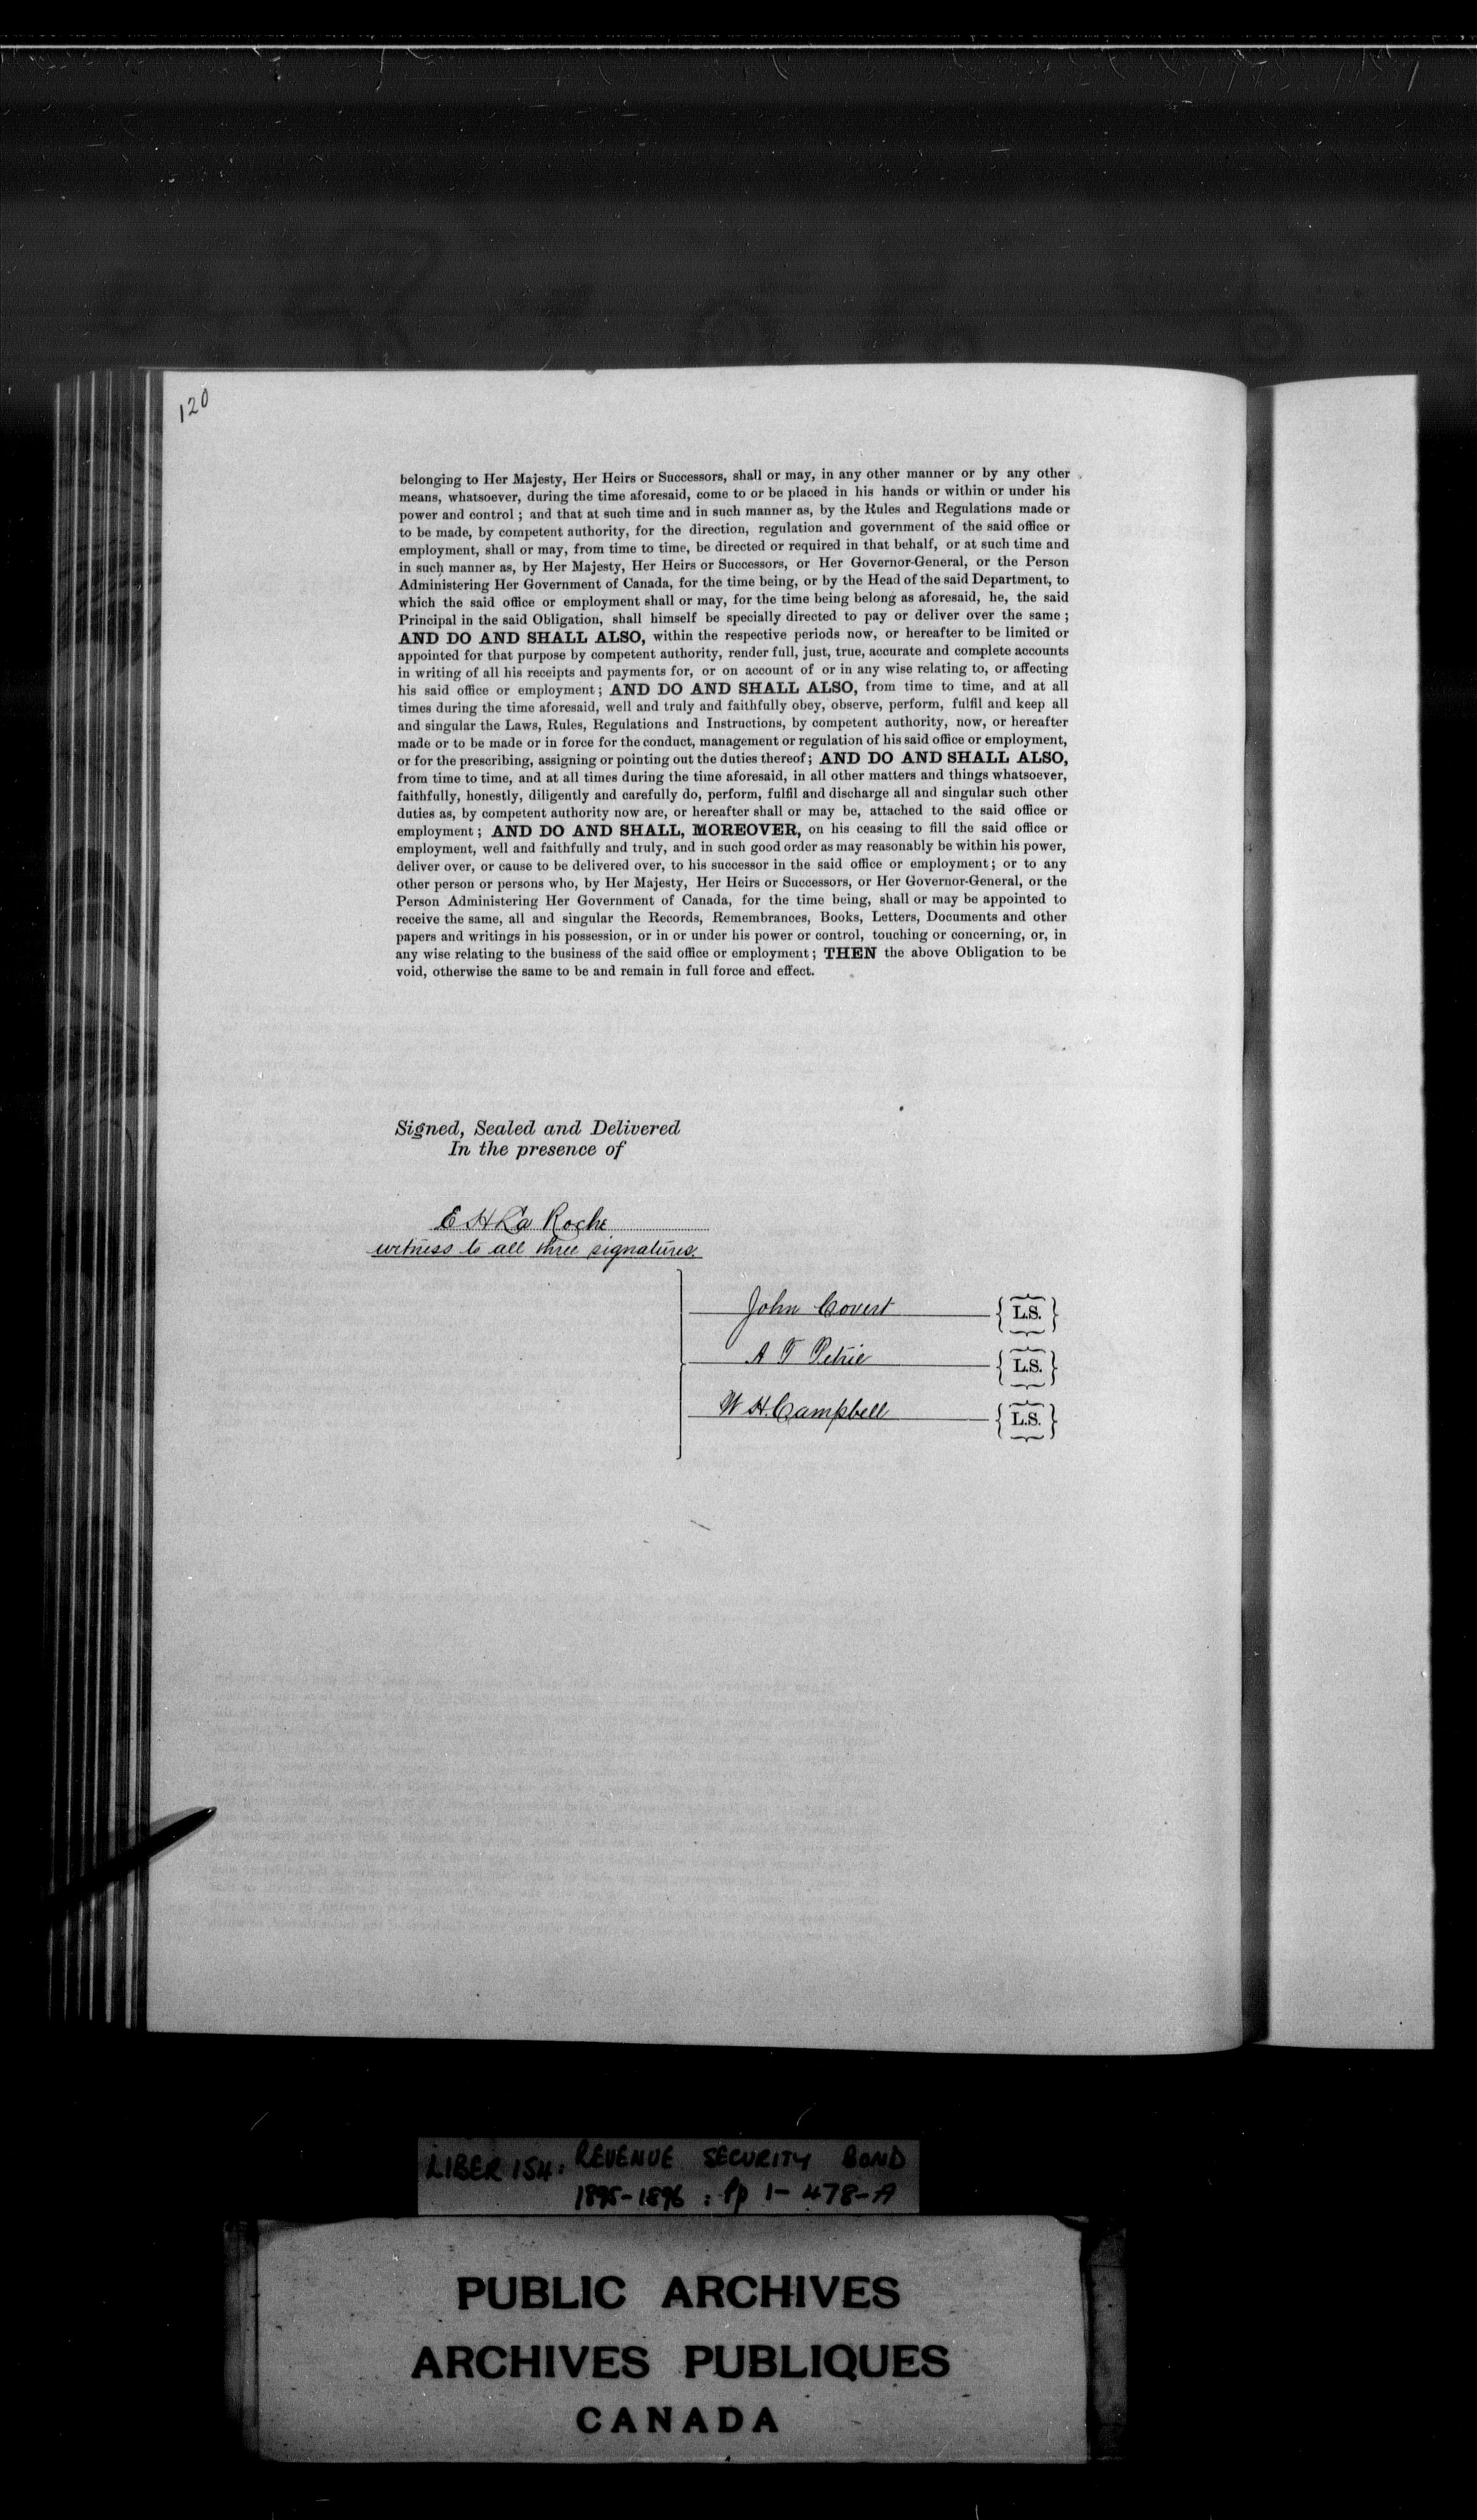 120
belonging to Her Majesty, Her Heirs or Successors, shall or may, in any other manner or by any other
means, whatsoever, during the time aforesaid, come to or be placed in his hands or within or under his
power and control ; and that at such time and in such manner as, by the Rules and Regulations made or
to be made, by competent authority, for the direction, regulation and government of the said office or
employment, shall or may, from time to time, be directed or required in that behalf, or at such time and
in such manner as, by Her Majesty, Her Heirs or Successors, or Her Governor-General, or the Person
Administering Her Government of Canada, for the time being, or by the Head of the said Department, to
which the said office or employment shall or may, for the time being belong as aforesaid, he, the said
Principal in the said Obligation, shall himself be specially directed to pay or deliver over the same ;
AND DO AND SHALL ALSO, within the respective periods now, or hereafter to be limited or
appointed for that purpose by competent authority, render full, just, true, accurate and complete accounts
in writing of all his receipts and payments for, or on account of or in any wise relating to, or affecting
his said office or employment ; AND DO AND SHALL ALSO, from time to time, and at all
times during the time aforesaid, well and truly and faithfully obey, observe, perform, fulfil and keep all
and singular the Laws, Rules, Regulations and Instructions, by competent authority, now, or hereafter
made or to be made or in force for the conduct, management or regulation of his said office or employment,
or for the prescribing, assigning or pointing out the duties thereof ; AND DO AND SHALL ALSO,
from time to time, and at all times during the time aforesaid, in all other matters and things whatsoever,
faithfully, honestly, diligently and carefully do, perform, fulfil and discharge all and singular such other
duties as, by competent authority now are, or hereafter shall or may be, attached to the said office or
employment ; AND DO AND SHALL, MOREOVER, on his ceasing to fill the said office or
employment, well and faithfully and truly, and in such good order as may reasonably be within his power,
deliver over, or cause to be delivered over, to his successor in the said office or employment ; or to any
other person or persons who, by Her Majesty, Her Heirs or Successors, or Her Governor-General, or the
Person Administering Her Government of Canada, for the time being, shall or may be appointed to
receive the same, all and singular the Records, Remembrances, Books, Letters, Documents and other
papers and writings in his possession, or in or under his power or control, touching or concerning, or, in
any wise relating to the business of the said office or employment ; THEN the above Obligation to be
void, otherwise the same to be and remain in full force and effect.
Signed, Sealed and Delivered
In the presence of
E H La Roche
witness to all three signatures.
John Covert { L.S. }
A T Petrie { L.S. }
W H. Campbell { L.S. }
LIBER 154: REVENUE SECURITY BOND
1895-1896 : Pp 1-478-A
PUBLIC ARCHIVES
ARCHIVES PUBLIQUES
CANADA